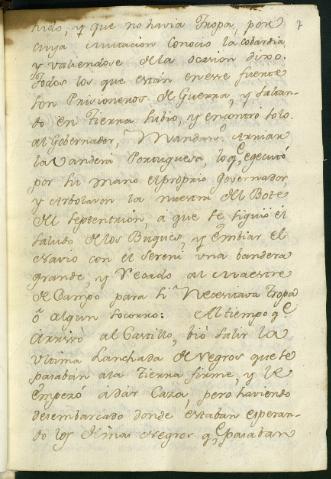 huido, y que no havia Tropa, por
cuya imitacion conocio la cobardia
y valiendose de la ocasion dixo:
Todos los que estan en ese fuerte
son Prisioneros de Guerra, y saltan-
do en Tierra subio, y encontro solo
al Governador, Mandan. Arriar
la vandera Portuguesa, lo q.e egecutó
por su mano el proprio governador
y Arbolaron la nuestra del Bote
del Septentrion, a que se siguió el
saludo de los Buques, y embiar el
Navio con el Sereni una bandera
grande, y Recado al Maestre
de Campo para si Necesitava tropa
ó algun socorro: Al tiempo q.e
Arrivo al Castillo, bió salir la
ultima Lanchada de Negros que se
pasaban a la tierra firme, y le
empezó a dar Caza, pero haviendo
desembarcado donde estaban esperan-
do los demas Negros q.e pasaban